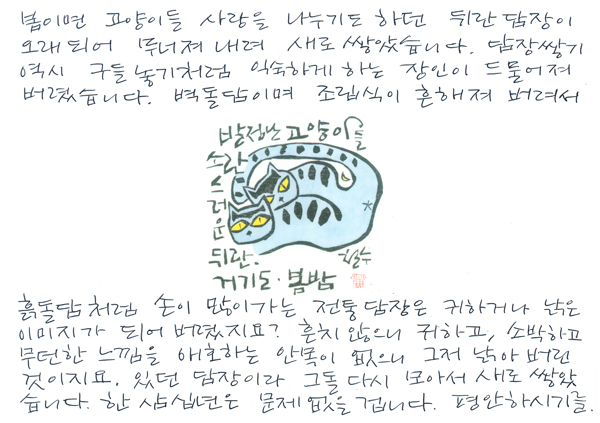 봄이면 고양이들 사랑을 나누기도 하던 뒤란 담장이
오래 되어 무너져 내려 새로 쌓았습니다. 담장쌓기
역시 구들 놓기처럼 익숙하게 하는 장인이 드물어져
버렸습니다. 벽돌담이며 조립식이 흔해져 버려서
발정난 고양이들
소란스러운
뒤란.
거기도·봄밤
철수
흙돌담처럼 손이 많이가는 전통담장은 귀하거나 낡은
이미지가 되어 버렸지요? 흔치 않으니 귀하고, 소박하고
무던한 느낌을 애호하는 안목이 없으니 그저 낡아 버린
것이지요. 있던 담장이라 그돌 다시 모아서 새로 쌓았
습니다. 한 삼십년은 문제 없을 겁니다. 평안하시기를.